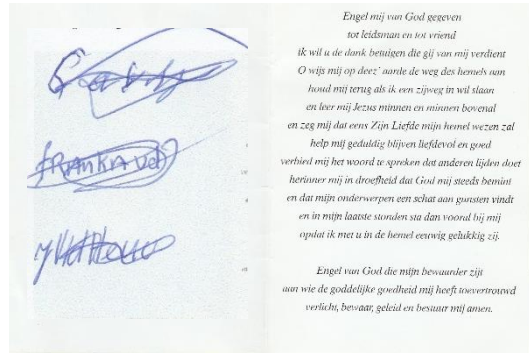 Engel mij van God gegeven
tot leidsman en tot vriend
ik wil u de dank betuigen die gij van mij verdient
O wijs mij op deez' aarde de weg des hemels aan
houd mij terug als ik een zijweg in wil slaan
en leer mij Jezus minnen en minnen bovenal
en zeg mij dat eens Zijn Liefde mijn hemel wezen zal
help mij geduldig blijven liefdevol en goed
verbied mij het woord te spreken dat anderen lijden doet
herinner mij in droefheid dat God mij steeds bemint
en dat mijn onderwerpen een schat aan gunsten vindt
en in mijn laatste stonden sta dan vooral bij mij
opdat ik met u in de hemel eeuwig gelukkig zij.
Engel van God die mijn bewaarder zijt
aan wie de goddelijke goedheid mij heeft toevertrouwd
verlicht, bewaar, geleid en bestuur mij amen.